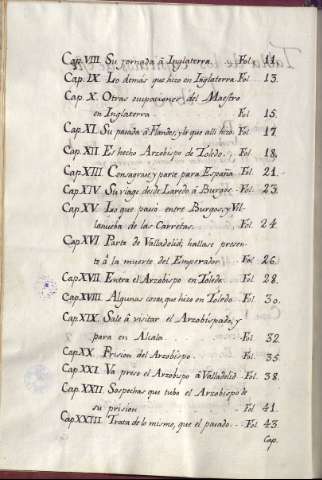 Cap. VIII. Su jornada â Inglaterra. Fol. 11.
Cap. IX. Lo demàs que hizo en Inglaterra. Fol. 13.
Cap. X. Otras ocupaciones del Maestro
en Inglaterra. Fol. 15.
Cap. XI. Su pasada â Flandes, y lo que alli hizo. Fol. 17
Cap. XII. Es hecho Arzobispo de Toledo. Fol. 18.
Cap. XIII. Consagrase, y parte para España. Fol. 21.
Cap. XIV. Su viage desde Laredo â Burgos. Fol. 23.
Cap. XV. Lo que pasò entre Burgos, y Vi-
llanueba de las Carretas. Fol. 24.
Cap. XVI. Parte de Valladolid; hallase presen-
te â la muerte del Emperador. Fol. 26.
Cap. XVII. Entra el Arzobispo en Toledo. Fol. 28.
Cap. XVIII. Algunas cosas, que hizo en Toledo. Fol. 30.
Cap. XIX. Sale â visitar el Arzobispado, y
para en Alcala. Fol. 32.
Cap. XX. Prision del Arzobispo. Fol. 35.
Cap. XXI. Va preso el Arzobispo â Valladolid. Fol. 38.
Cap. XXII. Sospechas que tubo el Arzobispo de
su prision. Fol. 41.
Cap. XXIII. Trata de lo mismo, que el pasado. Fol. 43.
Cap.